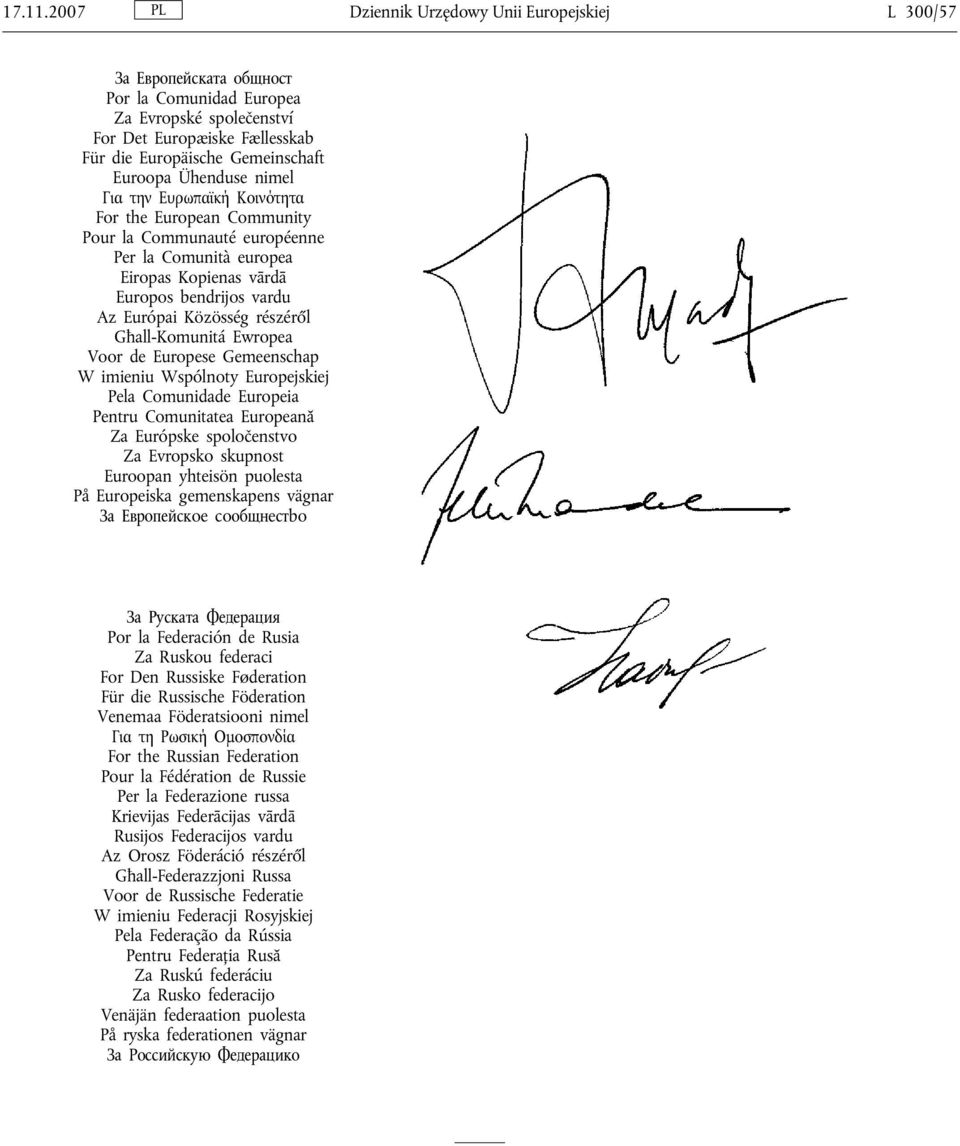 17.11.2007 PL Dziennik Urzędowy Unii Europejskiej L 300/57
За Европейската общност
Por la Comunidad Europea
Za Evropské společenství
For Det Europæiske Fællesskab
Für die Europäische Gemeinschaft
Euroopa Ühenduse nimel
Για την Ευρωπαϊκή Κοινότητα
For the European Community
Pour la Communauté européenne
Per la Comunità europea
Eiropas Kopienas vārdā
Europos bendrijos vardu
Az Európai Közösség részéről
Għall-Komunitá Ewropea
Voor de Europese Gemeenschap
W imieniu Wspólnoty Europejskiej
Pela Comunidade Europeia
Pentru Comunitatea Europeană
Za Európske spoločenstvo
Za Evropsko skupnost
Euroopan yhteisön puolesta
På Europeiska gemenskapens vägnar
За Европейское сообщнестbo
За Руската Федерация
Por la Federación de Rusia
Za Ruskou federaci
For Den Russiske Føderation
Für die Russische Föderation
Venemaa Föderatsiooni nimel
Για τη Ρωσική Ομοσπονδία
For the Russian Federation
Pour la Fédération de Russie
Per la Federazione russa
Krievijas Federācijas vārdā
Rusijos Federacijos vardu
Az Orosz Föderáció részéről
Għall-Federazzjoni Russa
Voor de Russische Federatie
W imieniu Federacji Rosyjskiej
Pela Federação da Rússia
Pentru Federația Rusă
Za Ruskú federáciu
Za Rusko federacijo
Venäjän federaation puolesta
På ryska federationen vägnar
За Российскую Федерацико